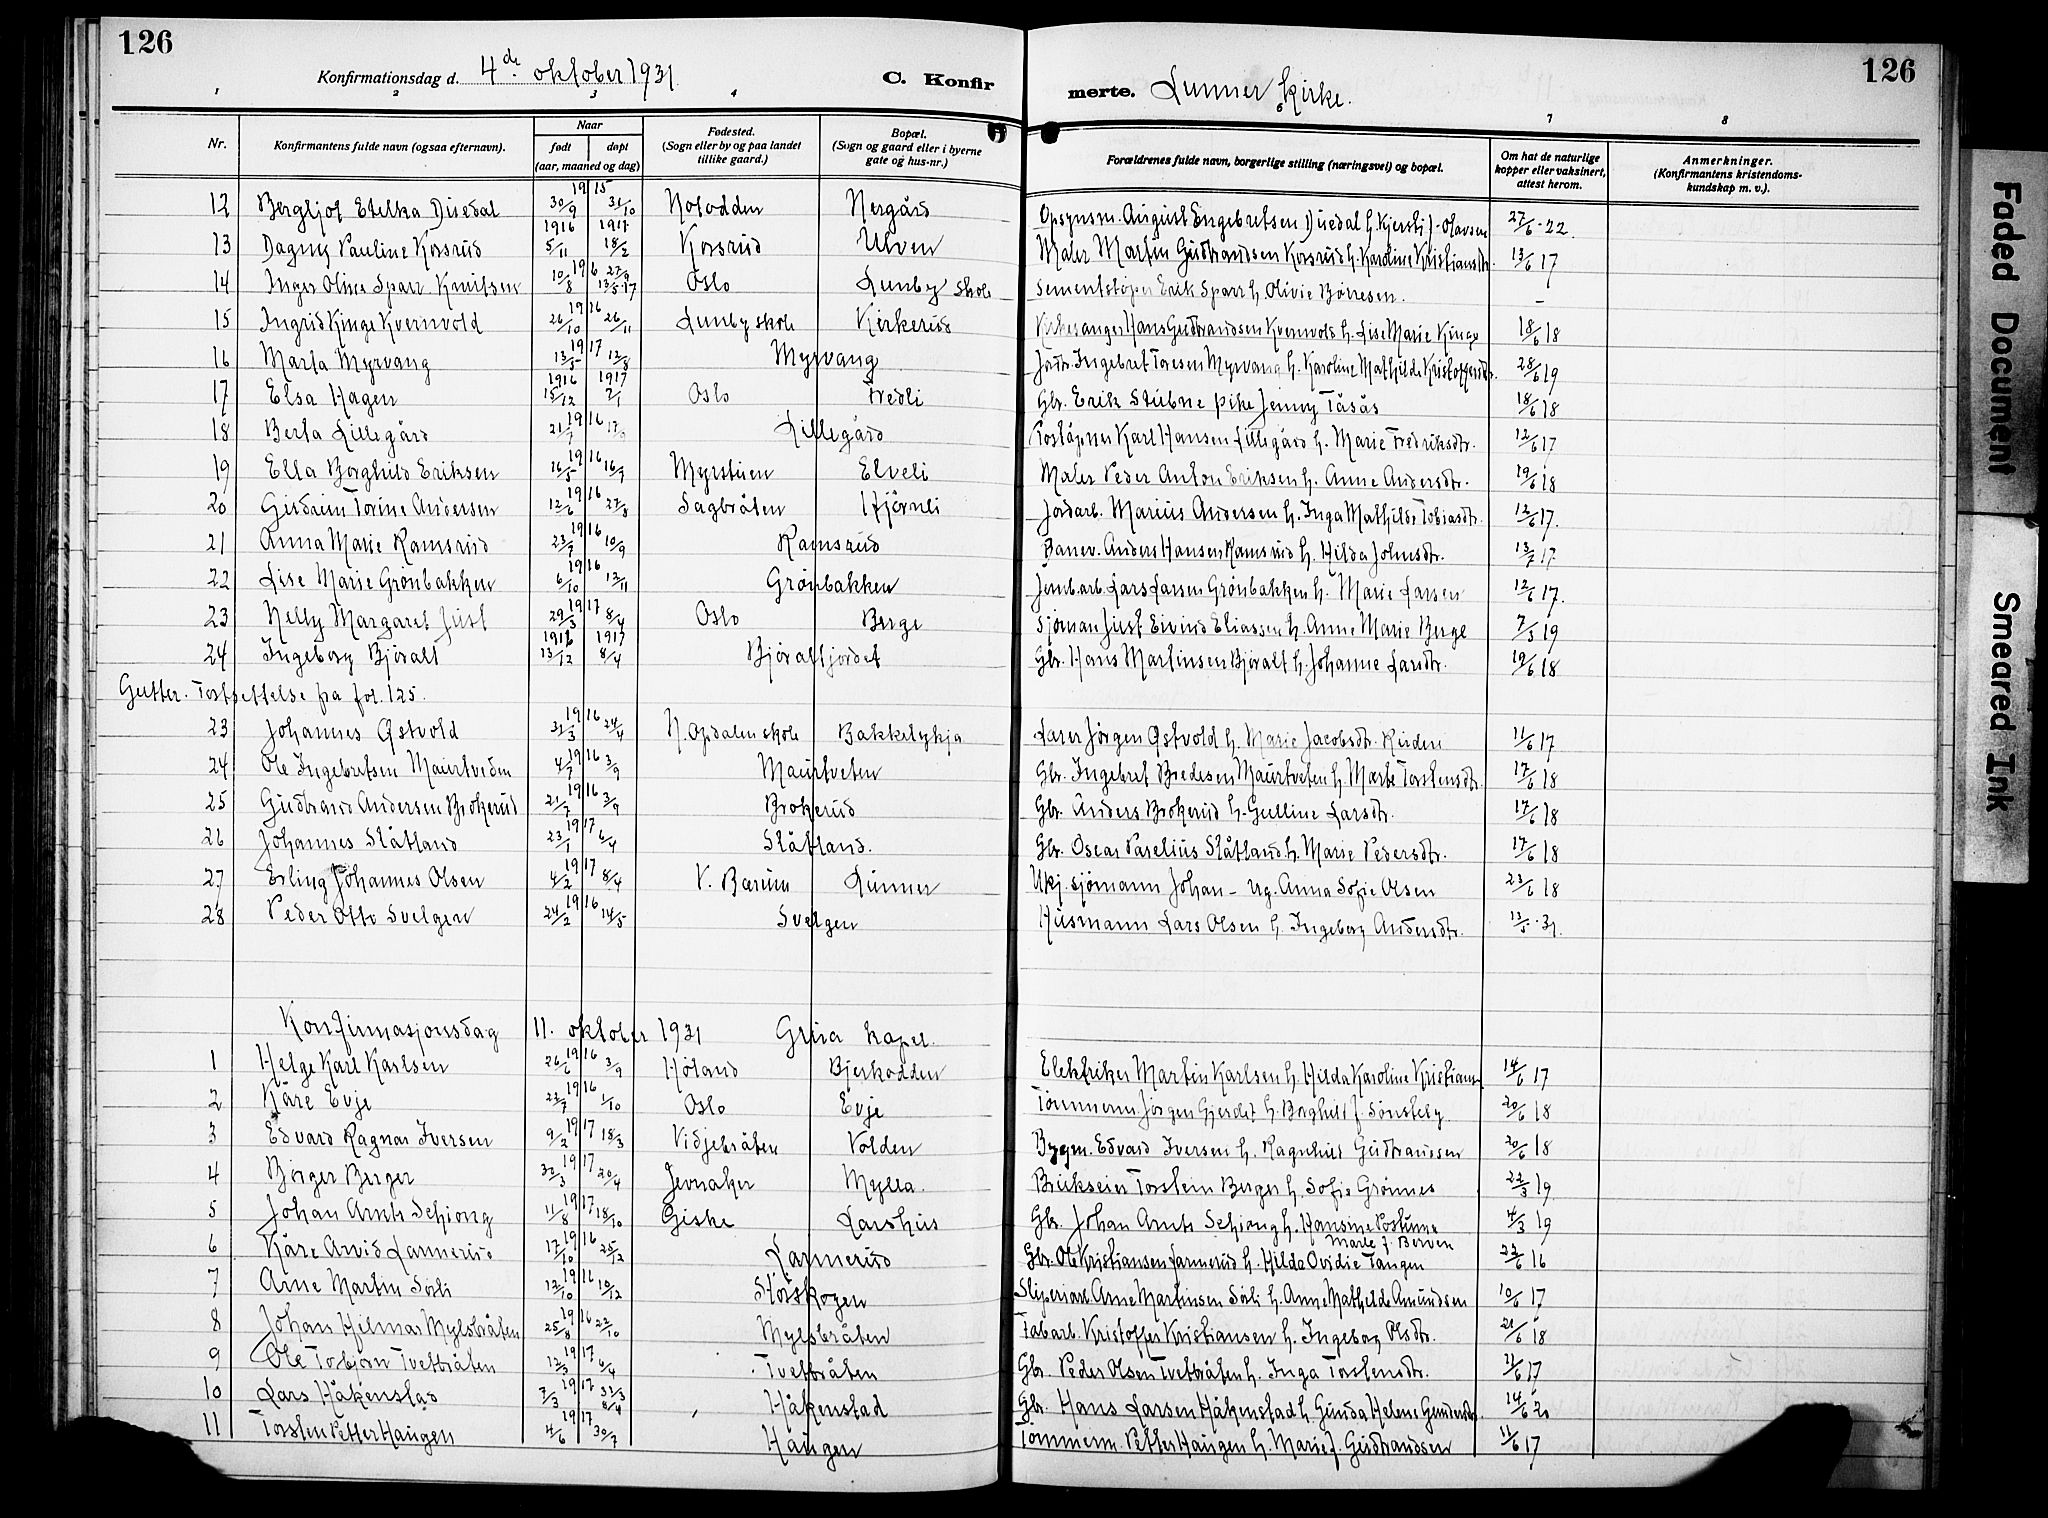 126
Konfirmationsdag d. 4de oktober 1931. C. Konfirmerte. Lunner kirke. 126
1 2 3 4 6 7 8
Nr. Konfirmantens fulde navn (ogsaa efternavn). Naar født døpt (aar, maaned og dag) Fødested. (Sogn eller by og paa landet tillike gaard.) Bopæl. (Sogn og gaard eller i byerne gate og hus-nr.) Forældrenes fulde navn, borgerlige stilling (næringsvei) og bopæl. Om hat de naturlige kopper eller vaksinert, attest herom. Anmerkninger. (Konfirmantens kristendomskundskap m. v.).
12 Bergljot Etelka Duedal 30/9 1915 31/10 Notodden Nergård Opsynsm. August Engebretsen Duedal h. Kjersti f. Olavsen 27/6-22.
13 Dagny Pauline Korsrud 1916 5/11 1917 18/2 Korsrud Ulven Maler Martin Gudbrandsen Korsrud h. Karoline Kristiansdtr. 13/6 17
14 Inger Oline Sparr Knutsen 10/8 1916 27/9 13/5-17 Oslo Lunby skole Sementstøper Erik Sparr h. Olivie Børresen. -
15 Ingrid Kinge Kvernvold 26/10 1916 26/11 Lunby skole Kirkerud Kirkesanger Hans Gudbrandsen Kvernvold h. Lise Marie Kinge 18/6 18
16 Marta Myrvang 13/5 1917 12/8 Myrvang Jordb. Ingebret Toresen Myrvang h. Karoline Mathilde Kristoffersdtr. 28/6 19
17 Elsa Hagen 1916 15/12 1917 2/1 Oslo Fredli Gbr. Erik Stubne pike Jenny Tåsås 18/6 18
18 Berta Lillegård 21/7 1916 17/9 Lillegård Poståpner Karl Hansen Lillegård h. Marie Fredriksdtr. 12/6 17
19 Ella Borghild Eriksen 16/5 1916 16/7 Myrstuen Elveli Maler Peder Anton Eriksen h. Anne Andersdtr. 19/6 18
20 Gudrun Torine Andersen 12/6 1916 27/8 Sagbråten Hjørnli Jordarb. Marius Andersen h. Inga Mathilde Tobiasdtr. 12/6 17.
21 Anna Marie Ramsrud 23/7 1916 10/9 Ramsrud Banev. Anders Hansen Ramsrud h. Hilda Johnsdtr. 13/7 17
22 Lise Marie Grønbakken 6/10 1916 12/11 Grønbakken Jernb.arb. Lars Larsen Grønbakken h. Marie Larsen 12/6 17.
23 Nelly Margaret Just 29/3 1917 8/4 Oslo Berge Sjøman Just Eivind Eliassen h. Anne Marie Berge 7/3 19
24 Ingeborg Bjøralt 1916 13/12 1917 8/4 Bjøraltjordet Gbr. Hans Martinsen Bjøralt h. Johanne Larsdtr. 19/6 18
Gutter. Fortsettelse fra fol. 125.
23 Johannes Østvold 31/3 1916 24/4 N. Opdalen skole Bakkelykja Lærer Jørgen Østvold h. Marie Jacobsdtr. 11/6 17
24 Ole Ingebretsen Maurtveden 4/7 1916 3/9 Maurtveten Gbr. Ingebret Bredesen Maurtveten h. Marte Torstensdtr. 17/6 18
25 Gudbrand Andersen Brokerud 21/7 1916 3/9 Brokerud Gbr. Anders Brokerud h. Gulline Larsdtr. 17/6 18
26 Johannes Slåtland 23/1 1917 6/4 Slåtland. Gbr. Oscar Parelius Slåtland h. Marie Pedersdtr. 17/6 18
27 Erling Johannes Olsen 4/2 1917 8/4 V. Bærum Lunner Ukj. sjømann Johan - ug. Anna Sofie Olsen 23/6 18
28 Peder Otto Svelgen 24/2 1916 14/5 Svelgen Husmann Lars Olsen h. Ingeborg Andersdtr. 13/5-31.
Konfirmasjonsdag 11. oktober 1931 Grua kapel.
1 Helge Karl Karlsen 26/6 1916 3/9 Høland Bjerkodden Elektriker Martin Karlsen h. Hilda Karoline Kristians 14/6 17
2 Kåre Evje 22/7 1916 1/10 Oslo Evje Tømmerm. Jørgen Gjerdet h. Borghild f. Sønsteby 20/6 18
3 Edvard Ragnar Iversen 9/2 1917 18/3 Vidjebråten Volden Bygm. Edvard Iversen h. Ragnhild Gudbrandsen 20/6 18
4 Birger Berger 1917 20/4 Jevnaker Mylla. Brukseier Torstein Berger h. Sofie Grønnes 22/3 19
5 Johan Arnts Schiong 11/8 1917 18/10 Giske Larshus Gbr. Johan Arnts Schiong h. Hansine Postumine Marle f. Berven 4/3 19
6 Kåre Arvid Lannerud 17/10 1916 25/12 Lannerud Gbr. Ole Kristiansen Lannerud h. Hilda Ovidie Tangen 22/6 16
7 Arne Martin Sørli 12/10 1916 10/12 Storskogen Sliperiarb. Arne Martinsen Sørli h. Anne Mathilde Amundsen 10/6 17
8 Johan Hilmar Mylsbråten 25/8 1916 22/10 Mylsbråten Fab.arb. Kristoffer Kristiansen h. Ingeborg Olsdtr. 21/6 18
9 Ole Torbjørn Tvetbråten 12/3 1917 6/4 Tvetbråten Gbr. Peder Olsen Tvetbråten h. Inga Torstensdtr. 11/6 17
10 Lars Håkenstad 7/3 1917 8/4 Håkenstad Gbr. Hans Larsen Håkenstad h. Gunda Helene Gundersdtr. 14/6 20
11 Torsten Petter Haugen 4/6 1917 30/7 Haugen Tømmerm. Petter Haugen h. Marie f. Gudbrandsen 11/6 17
Faded Document
Smeared Ink